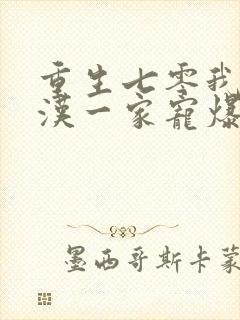 重生七零我
汉一家宠爆
墨西哥斯卡蒙